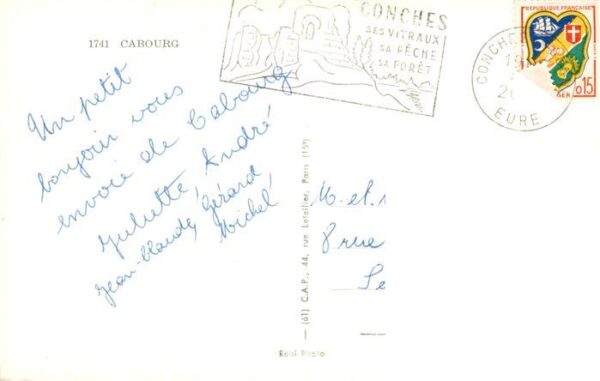 1741 CABOURG
CONCHES
SES VITRAUX
SA PÊCHE
SA FORÊT
CONCHE
EURE
REPUBLIQUE FRANÇAISE
ALGER
0,15
Un petit
bonjour vous
envoie de Cabourg
Juliette, André
Jean-Claude, Gérard,
Michel
M. et
8 rue
(61) C.A.P., 44, rue Letellier, Paris (15e)
Réal Photo